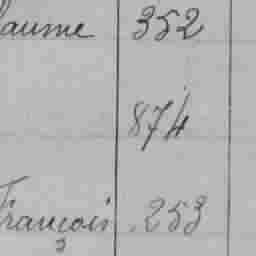 laume 352
874
François 253